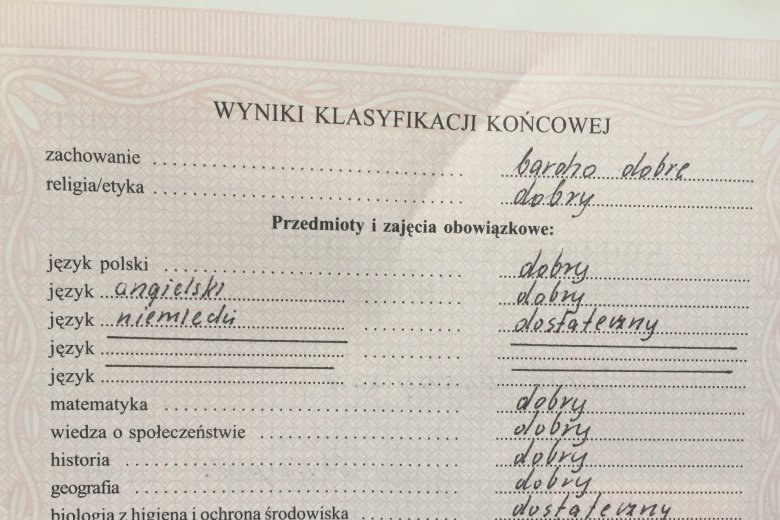 WYNIKI KLASYFIKACJI KOŃCOWEJ
zachowanie bardzo dobre
religia/etyka dobry
Przedmioty i zajęcia obowiązkowe:
język polski dobry
język angielski dobry
język niemiecki dostateczny
język
język
matematyka dobry
wiedza o społeczeństwie dobry
historia dobry
geografia dobry
biologia z higieną i ochroną środowiska dostateczny